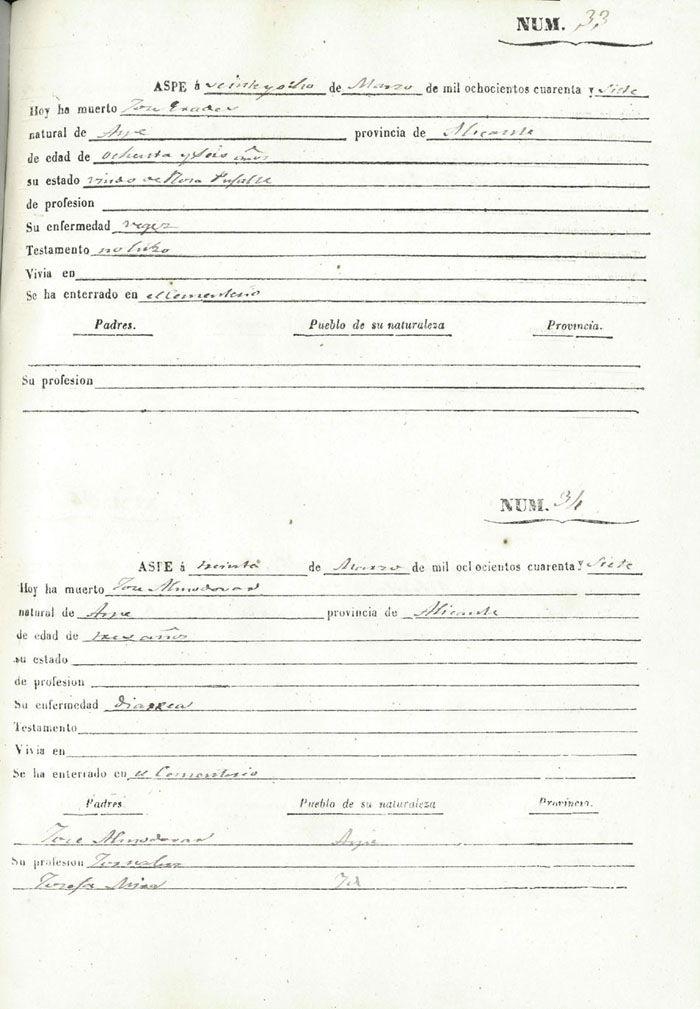 NUM. 33
ASPE á veinte y ocho de Marzo de mil ochocientos cuarenta y Siete
Hoy ha muerto Jose
natural de Aspe provincia de Alicante
de edad de ochenta y seis años
su estado viudo de Rosa
de profesion
Su enfermedad vejez
Testamento no hizo
Vivia en
Se ha enterrado en el Cementerio
Padres. Pueblo de su naturaleza Provincia.
Su profesion
NUM. 34
ASPE á treinta de Marzo de mil ochocientos cuarenta y Siete
Hoy ha muerto Jose Almodovar
natural de Aspe provincia de Alicante
de edad de tres años
su estado
de profesion
Su enfermedad diarrea
Testamento
Vivia en
Se ha enterrado en el Cementerio
Padres. Pueblo de su naturaleza Provincia.
Jose Almodovar Aspe
Su profesion Jornalero
Teresa Mira Id